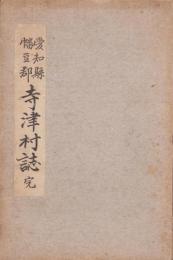 愛知縣
幡豆郡
寺津村誌 完